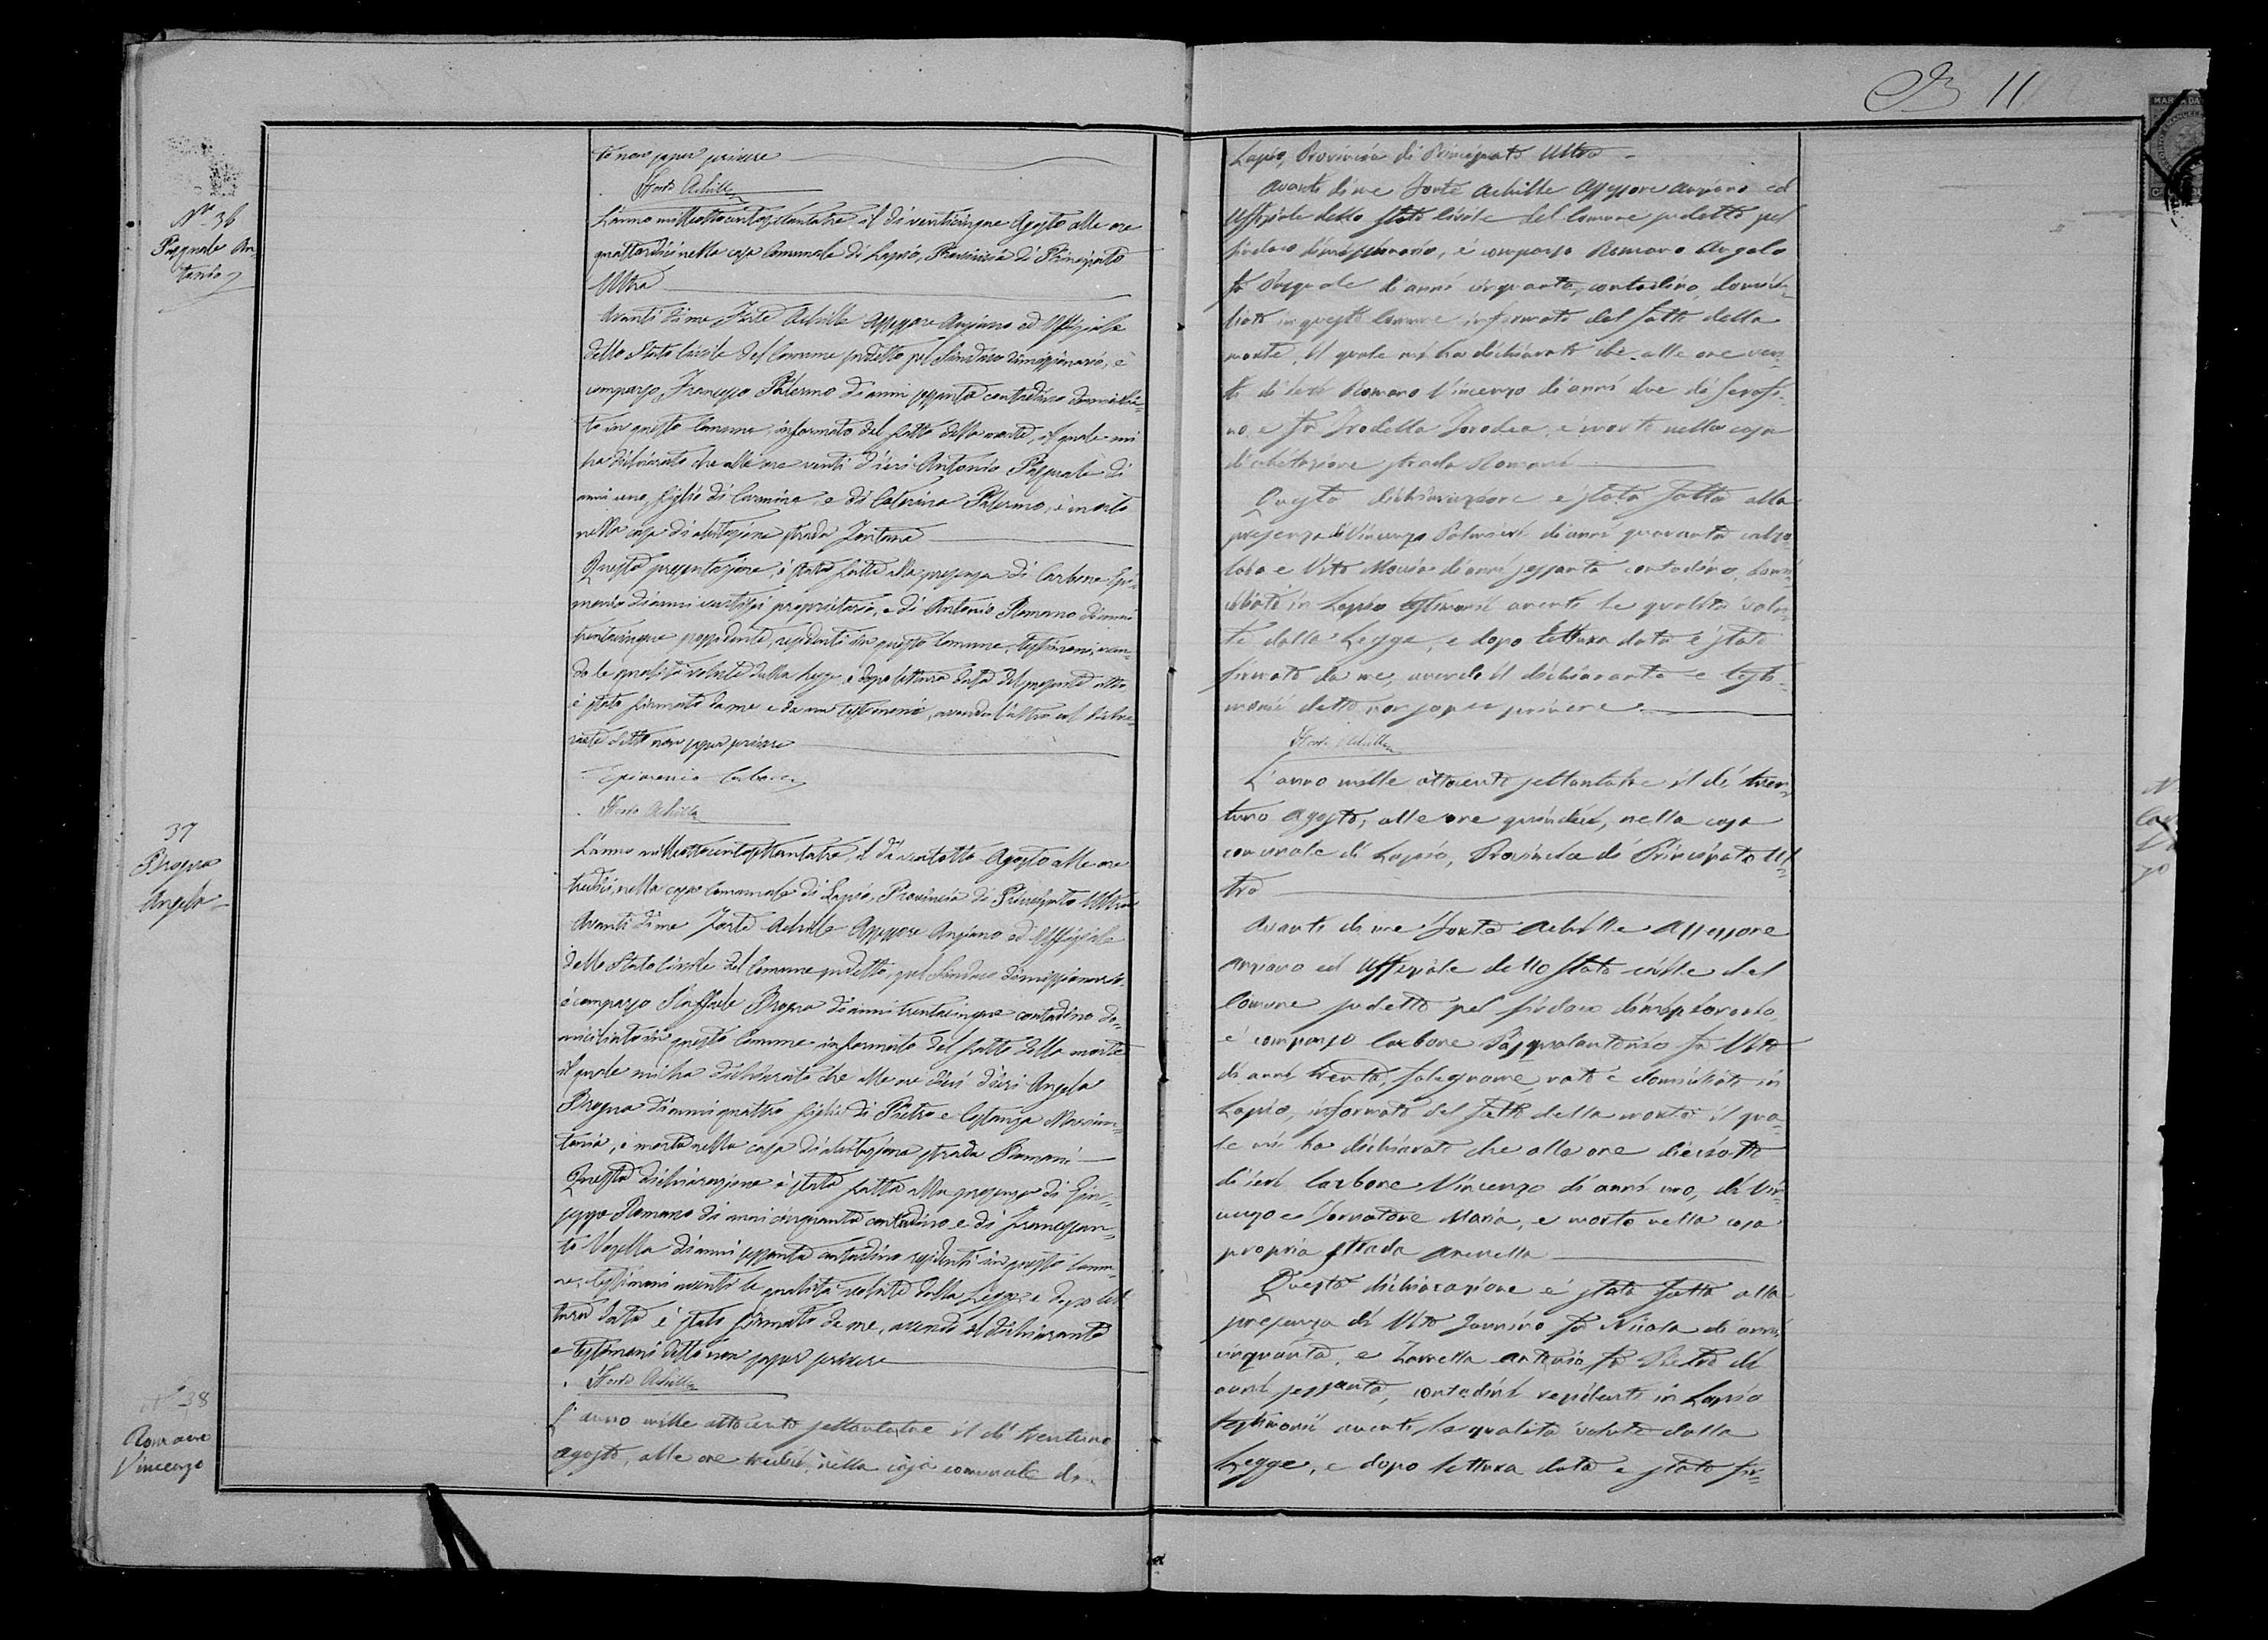 to non saper scrivere
Forte Achille
No. 36
Pasquale An-
tonio
L'anno milleottocentosettantatre il dì venticinque Agosto alle ore
quattordici nella casa Comunale di Lapio, Provincia di Principato
Ultra
Avanti di me Forte Achille Assessore Anziano ed Uffiziale
dello Stato Civile del Comune sudetto pel Sindaco dimissionario, è
comparso Francesco Palermo di anni sessanta contadino domicilia-
to in questo Comune, informato del fatto della morte, il quale mi
ha dichiarato che alle ore venti d'ieri Antonio Pasquale di
anni uno, figlio di Carmine, e di Caterina Palermo, è morto
nella casa di abitazione strada Fontana
Questa presentazione, è stata fatta alla presenza di Carbone Epi-
menio di anni ventisei proprietario, e di Antonio Romano di anni
trentacinque possidente, residenti in questo Comune, testimoni, aven-
do le qualità volute dalla Legge, e dopo lettura data del presente atto
è stato firmato da me e da un testimonio, avendo l'altro col dichia-
rante detto non saper scrivere
Epimenio Carbone
Forte Achille
37
Brogna
Angela
L'anno milleottocentosettantatre, il dì ventotto Agosto alle ore
tredici, nella casa Comunale di Lapio, Provincia di Principato Ultra
Avanti di me Forte Achille Assessore Anziano ed Uffiziale
dello Stato Civile del Comune sudetto, pel Sindaco dimissionario,
è comparso Raffaele Brogna di anni trentacinque contadino do-
miciliato in questo Comune informato del fatto della morte
il quale mi ha dichiarato che alle ore dieci d'ieri Angela
Brogna di anni quattro figlia di Pietro e Costanza
è morta nella casa di abitazione strada Romani
Questa dichiarazione è stata fatta alla presenza di Giu-
seppe Romano di anni cinquanta contadino e di Francesan-
to Vozella di anni sessanta contadino residenti in questo Comu-
ne, testimoni aventi le qualità volute dalla Legge, e dopo let-
tura data è stato firmato da me, avendo il dichiarante
e testimoni detto non saper scrivere
Forte Achille
No 38
Romano
Vincenzo
L'anno mille ottocento settantatre il dì trentuno
agosto, alle ore tredici, nella casa comunale di
11
Lapio, Provincia di Principato Ultra
Avanti di me Forte Achille Assessore anziano ed
Uffiziale dello Stato Civile del Comune sudetto pel
Sindaco dimissionario, è comparso Romano Angelo
fu Pasquale di anni cinquanta, contadino, domici-
liato in questo Comune informato del fatto della
morte, il quale mi ha dichiarato che alle ore ven-
ti di ieri Romano Vincenzo di anni due di Serafi-
no e fu Irodella è morto nella casa
di abitazione strada Romani
Questa dichiarazione è stata fatta alla
presenza di Vincenzo di anni quaranta calzo-
laio e Vito di anni sessanta contadino, domi-
ciliati in Lapio testimonii aventi le qualità volu-
te dalla Legge, e dopo lettura data è stato
firmato da me, avendo il dichiarante e testi-
monii detto non saper scrivere
Forte Achille
L'anno mille ottocento settantatre il dì tren-
tuno Agosto, alle ore quindici, nella casa
comunale di Lapio, Provincia di Principato Ul-
tra
Avanti di me Forte Achille Assessore
anziano ed Uffiziale dello Stato civile del
Comune sudetto pel Sindaco dimissionario
è comparso Carbone Pasqualantonio fu Vito
di anni trenta, falegname, nato e domiciliato in
Lapio, informato del fatto della morte il qua-
le mi ha dichiarato che alle ore dieciotto
di ieri Carbone Vincenzo di anni uno, di Vin-
cenzo e Maria, è morto nella casa
propria strada Arenella
Questa dichiarazione è stata fatta alla
presenza di Vito fu Nicola di anni
cinquanta, e Zarrella Antonio fu Pietro di
anni sessanta, contadini residenti in Lapio
testimonii aventi la qualità voluta dalla
Legge, e dopo lettura data è stato fir-